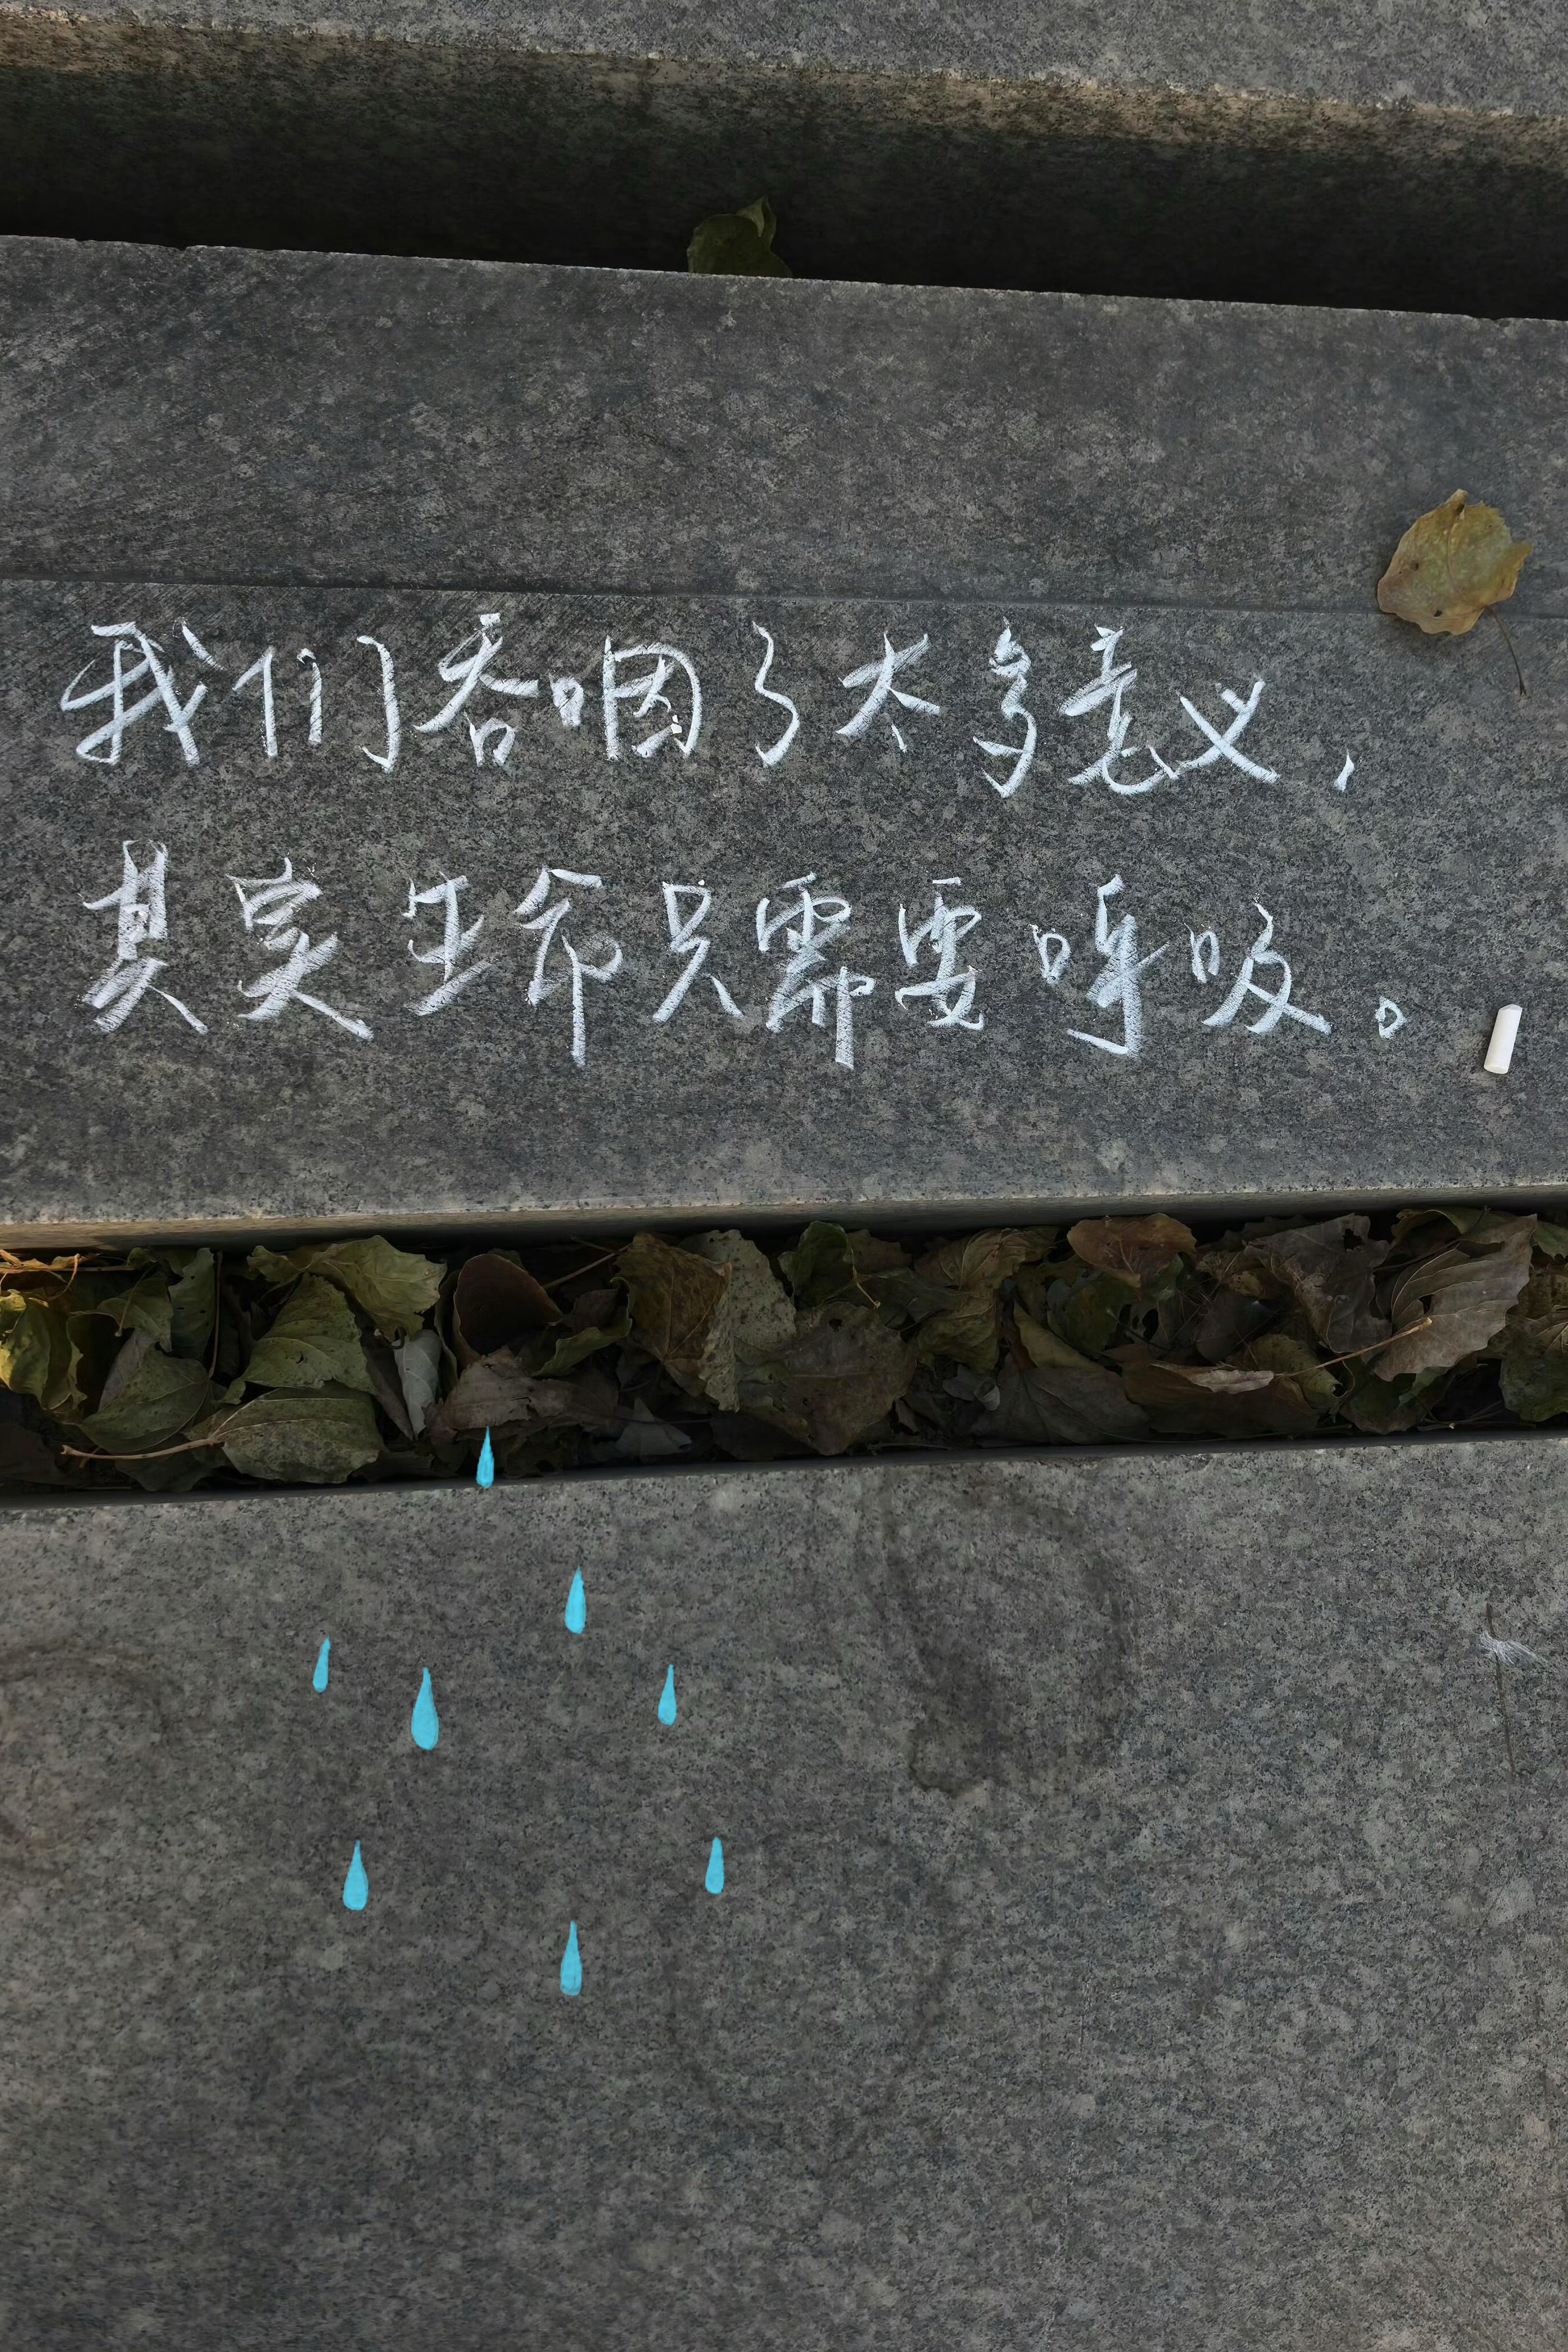 我们吞咽了太多意义，
其实生命只需要呼吸。